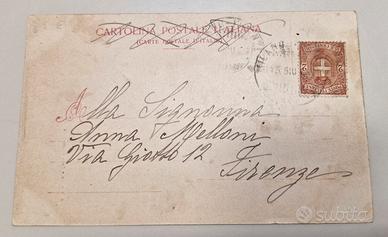 CARTOLINA POSTALE ITALIANA
(CARTE POSTALE D'ITALIE)
MILANO
Alla Signorina
Anna Mellani
Via Giotto 12
Firenze
subito.it